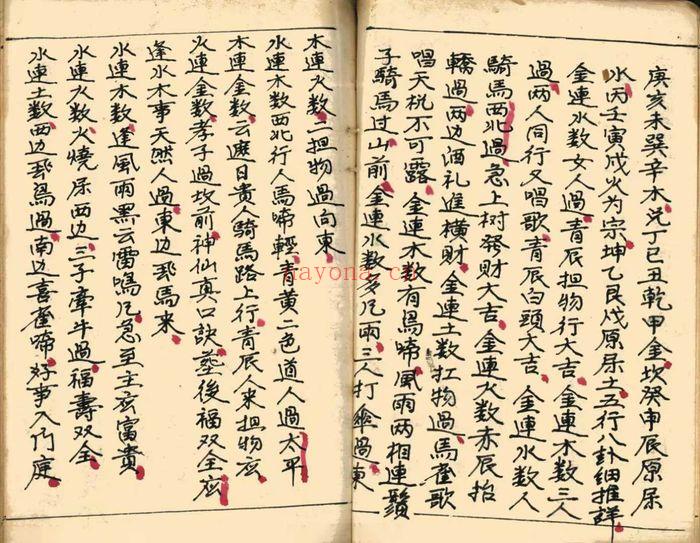 庚亥未巽辛木兑丁巳丑乾甲金坎癸申辰原屎
水丙壬寅戍火为宗坤乙艮戊原屎土五行八卦细推詳
金連水数女人過青辰担物行大吉金連木数三人
過两人同行又唱歌青辰白頭大吉金連水数人
騎馬西北過急上树發財大吉金連火数赤辰抬
轎過两边酒礼進横財金連土数扛物過馬雀歌
唱天机不可露金連木数有鳥啼風雨两相連鬚
子騎馬过山前金連水数多凡雨三人打傘過東
木連火数二担物過向東
水連木数西北行人馬啼輕青黄二色道人過太平
木連金数云遮日貴人騎馬路上行青辰人来担物应
火連金数孝子過坟前神仙真口訣塟後福双全应
逢水木事天然人過東边邪馬来
水連木数逢風雨黑云雷鳴凡急至主应富貴
水連火数火燒屎两边三子牽牛過福壽双全
水連土数西边邪鳥過南边喜雀啼好事入门庭
nayona.cn